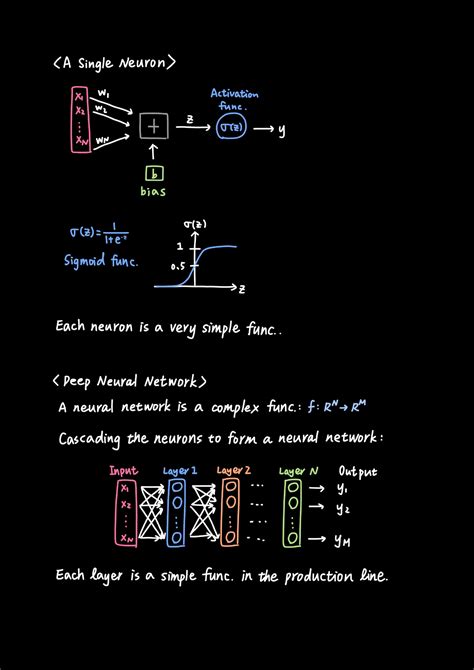 <A Single Neuron>
Activation
func.
x₁ w₁
x₂ w₂
⋮
x_N w_N
+ z σ(z) → y
b
bias
σ(z) = 1/(1+e^-z)
Sigmoid func.
σ(z)
1
0.5
z
Each neuron is a very simple func..
<Deep Neural Network>
A neural network is a complex func.: f: R^N → R^M
Cascading the neurons to form a neural network:
Input Layer 1 Layer 2 Layer N Output
x₁ ... → y₁
x₂ ... → y₂
⋮ ⋮ ⋮ ⋮
x_N ... → y_M
Each layer is a simple func. in the production line.